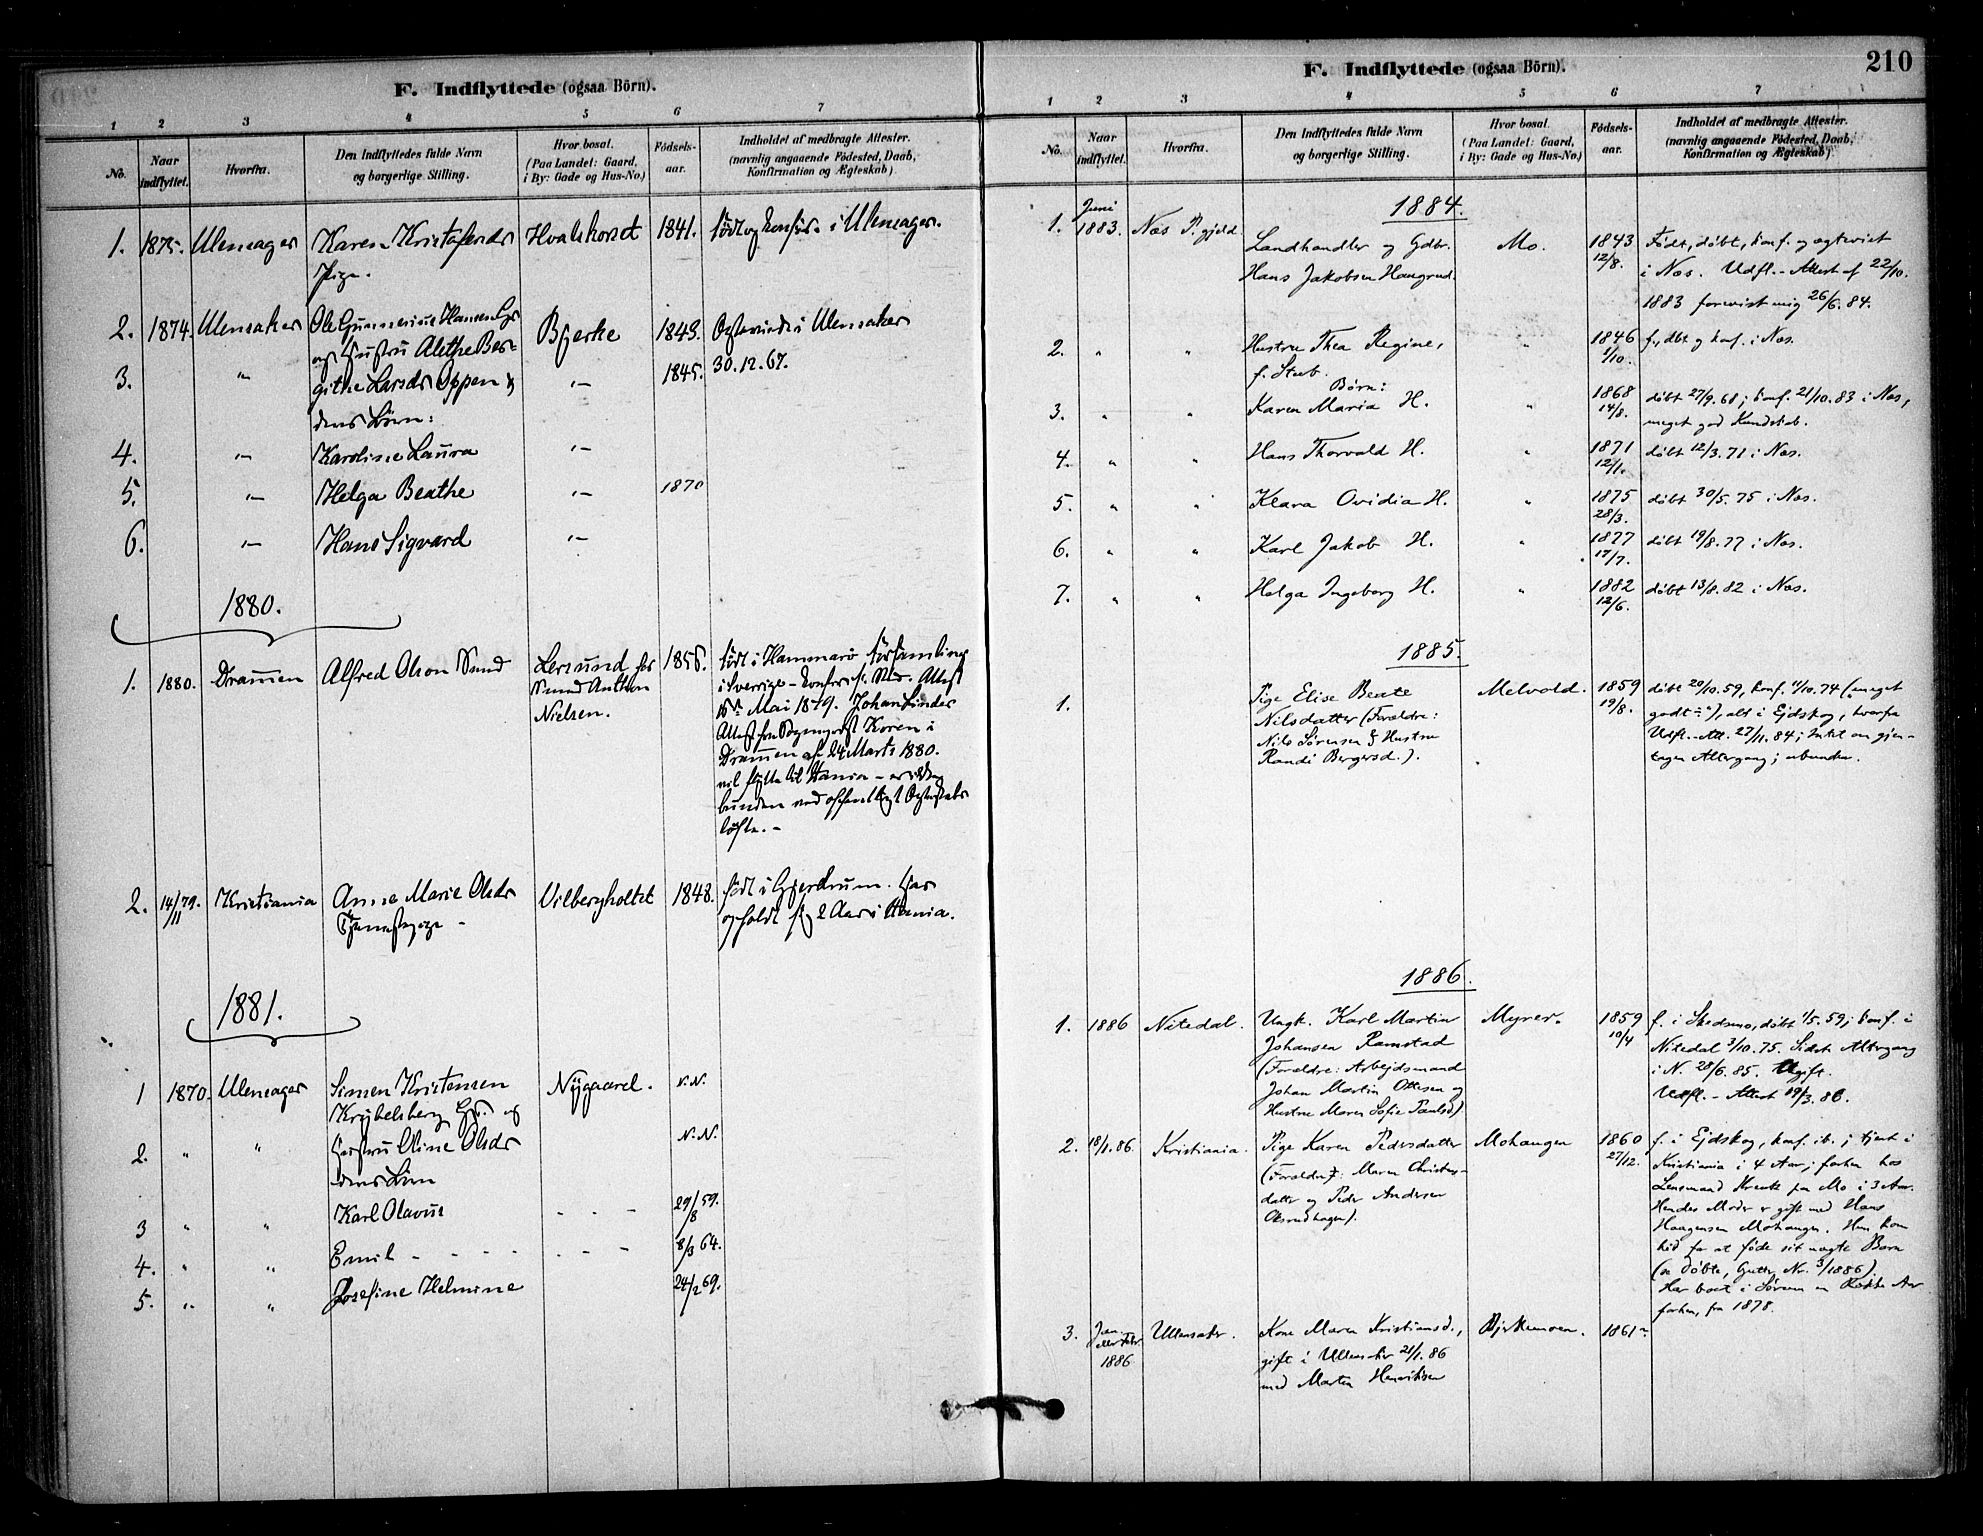 F. Indflyttede (ogsaa Börn).
1 2 3 4 5 6 7
No. Naar indflyttet. Hvorfra. Den Indflyttedes fulde Navn og borgerlige Stilling. Hvor bosat. (Paa Landet: Gaard, i By: Gade og Hus-No.) Födsels-aar. Indholdet af medbragte Attester. (navnlig angaaende Födested, Daab, Konfirmation og Ægteskab)
1. 1875. Ullensager Karen Kristofersdr Hvalshoret 1841. født og konfir. i Ullensager.
Pige.
2. 1874. Ullensaker Ole Gunnerius Hansen Bjerke 1843. Ægteviede i Ullensaker
3. " og Hustru Alethe Ber- 30.12.67.
githe Larsdr Oppen & -"- 1845.
deres Børn:
4. -"- Karoline Laura -"-
5. -"- Helga Beathe -"- 1870
6. -"- Hans Sigvard -"-
1880.
1. 1880. Drammen Alfred Olson Sund Lersund hos 1856. født i Hammarö församling
Sund Anthon i Sverrige - Attest
Nielsen. Mai 1879. Johan Linder
Attest fra Sogneprest Koren i
Drammen af 24 Marts 1880.
vil flytte til - er ikke
bunden ved offentligt Ægteskabs
løfte. -
2. 14/11 79. Kristiania Anne Marie Olsdr Vilbergholtet 1848. født i Gjerdrum. Har
Tjenestepige - opholdt sig 2 Aar i Kania.
1881.
1 1870. Ullensager Simen Kristensen Nygaard. N.N.
Krybelsberg Gbr. og
2. " " Hustru Oline Olsdr N.N.
deres Børn
3 " " Karl Olavus - - - 29/8 59.
4. " " Emil - - - - - - - 8/3 64.
5. " " Josefine Helmine 24/2 69.
F. Indflyttede (ogsaa Börn). 210
1 2 3 4 5 6 7
No. Naar indflyttet. Hvorfra. Den Indflyttedes fulde Navn og borgerlige Stilling. Hvor bosat. (Paa Landet: Gaard, i By: Gade og Hus-No.) Födsels-aar. Indholdet af medbragte Attester. (navnlig angaaende Födested, Daab, Konfirmation og Ægteskab).
1884.
1. Juni 1883. Næs P. gjeld Landhandler og Gdbr. Mo. 1843 Født, døbt, konf. og ægteviet
Hans Jakobsen Haugrud. 12/8. i Næs. Udfl.-Attest af 22/10.
1883 forevist mig 26/6. 84.
2. " " Hustru Thea Regine, " 1846 f., dbt og konf. i Næs.
f. Stub. 1/10.
Børn:
3. " " Karen Maria H. " 1868 døbt 27/9.68; konf. 21/10.83 i Næs,
14/8. meget god Kundskab.
4. " " Hans Thorvald H. " 1871 døbt 12/3.71 i Næs.
12/1.
5. " " Klara Ovidia H. " 1875 døbt 30/5.75 i Næs.
28/3.
6. " " Karl Jakob H. " 1877 døbt 19/8.77 i Næs.
17/7.
7. " " Helga Ingeborg H. " 1882 døbt 13/8.82 i Næs.
12/6.
1885.
1. Pige Elise Beate Melvold. 1859 døbt 20/10.59, konf. 11/10.74 (meget
Nilsdatter (Forældre: 19/8. godt), alt i Ejdskog, hvorfra
Nils Sørensen & Hustru Udfl.-Att. 27/11.84; Intet om gjen-
Randi Bergersd.). tagen Altergang; ubunden.
1886.
1. 1886 Nitedal. Ungk. Karl Martin Myrer. 1859 f. i Skedsmo, døbt 1/5.59; konf. i
Johansen Ramstad 10/4 Nitedal 3/10.75. Sidst Altergang
(Forældre: Arbejdsmand i N. 28/6.85. Ugift.
Johan Martin Ottesen og Udfl.-Attest 19/3.86.
Hustru Maren Sofie Paulsd.)
2. 18/1.86. Kristiania. Pige Karen Pedersdatter Mohaugen 1860 f. i Ejdskog, konf. ib.; tjent i
(Forældre: Maren Christens- 27/12. Kristiania i 4 Aar; forhen hos
datter og Peder Andersen Lensmand paa Mo i 3 Aar.
Oksrudhagen). Hendes Moder er gift med Hans
Haagensen Mohaugen. Hun kom
hid for at føde sit uægte Barn
(se Døbte, Gutter Nr. 3/1886).
Har boet i Sørum en Række Aar
forhen, fra 1878.
3. Jan. eller Febr. 1886 Ullensaker. Kone Maren Kristiansd., Bjerkemoen. 1861
gift i Ullensaker 21/1.86
med Martin Henriksen